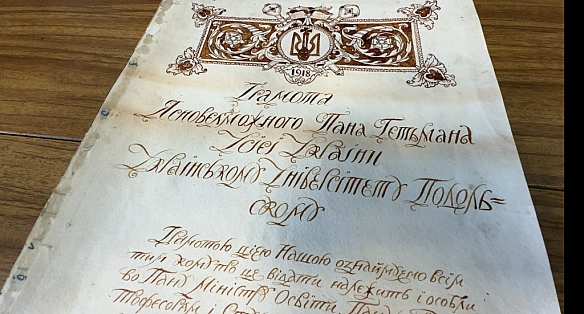 1918
Грамота
Ясновелможного Пана Гетьмана
Усієї України
Українському Університету Подоль=
скому
Грамотою цією Нашою ознаймуємо всім
тим кому то це відати належить і особли
во Пану Міністру Освіти, Панам
Професорам і